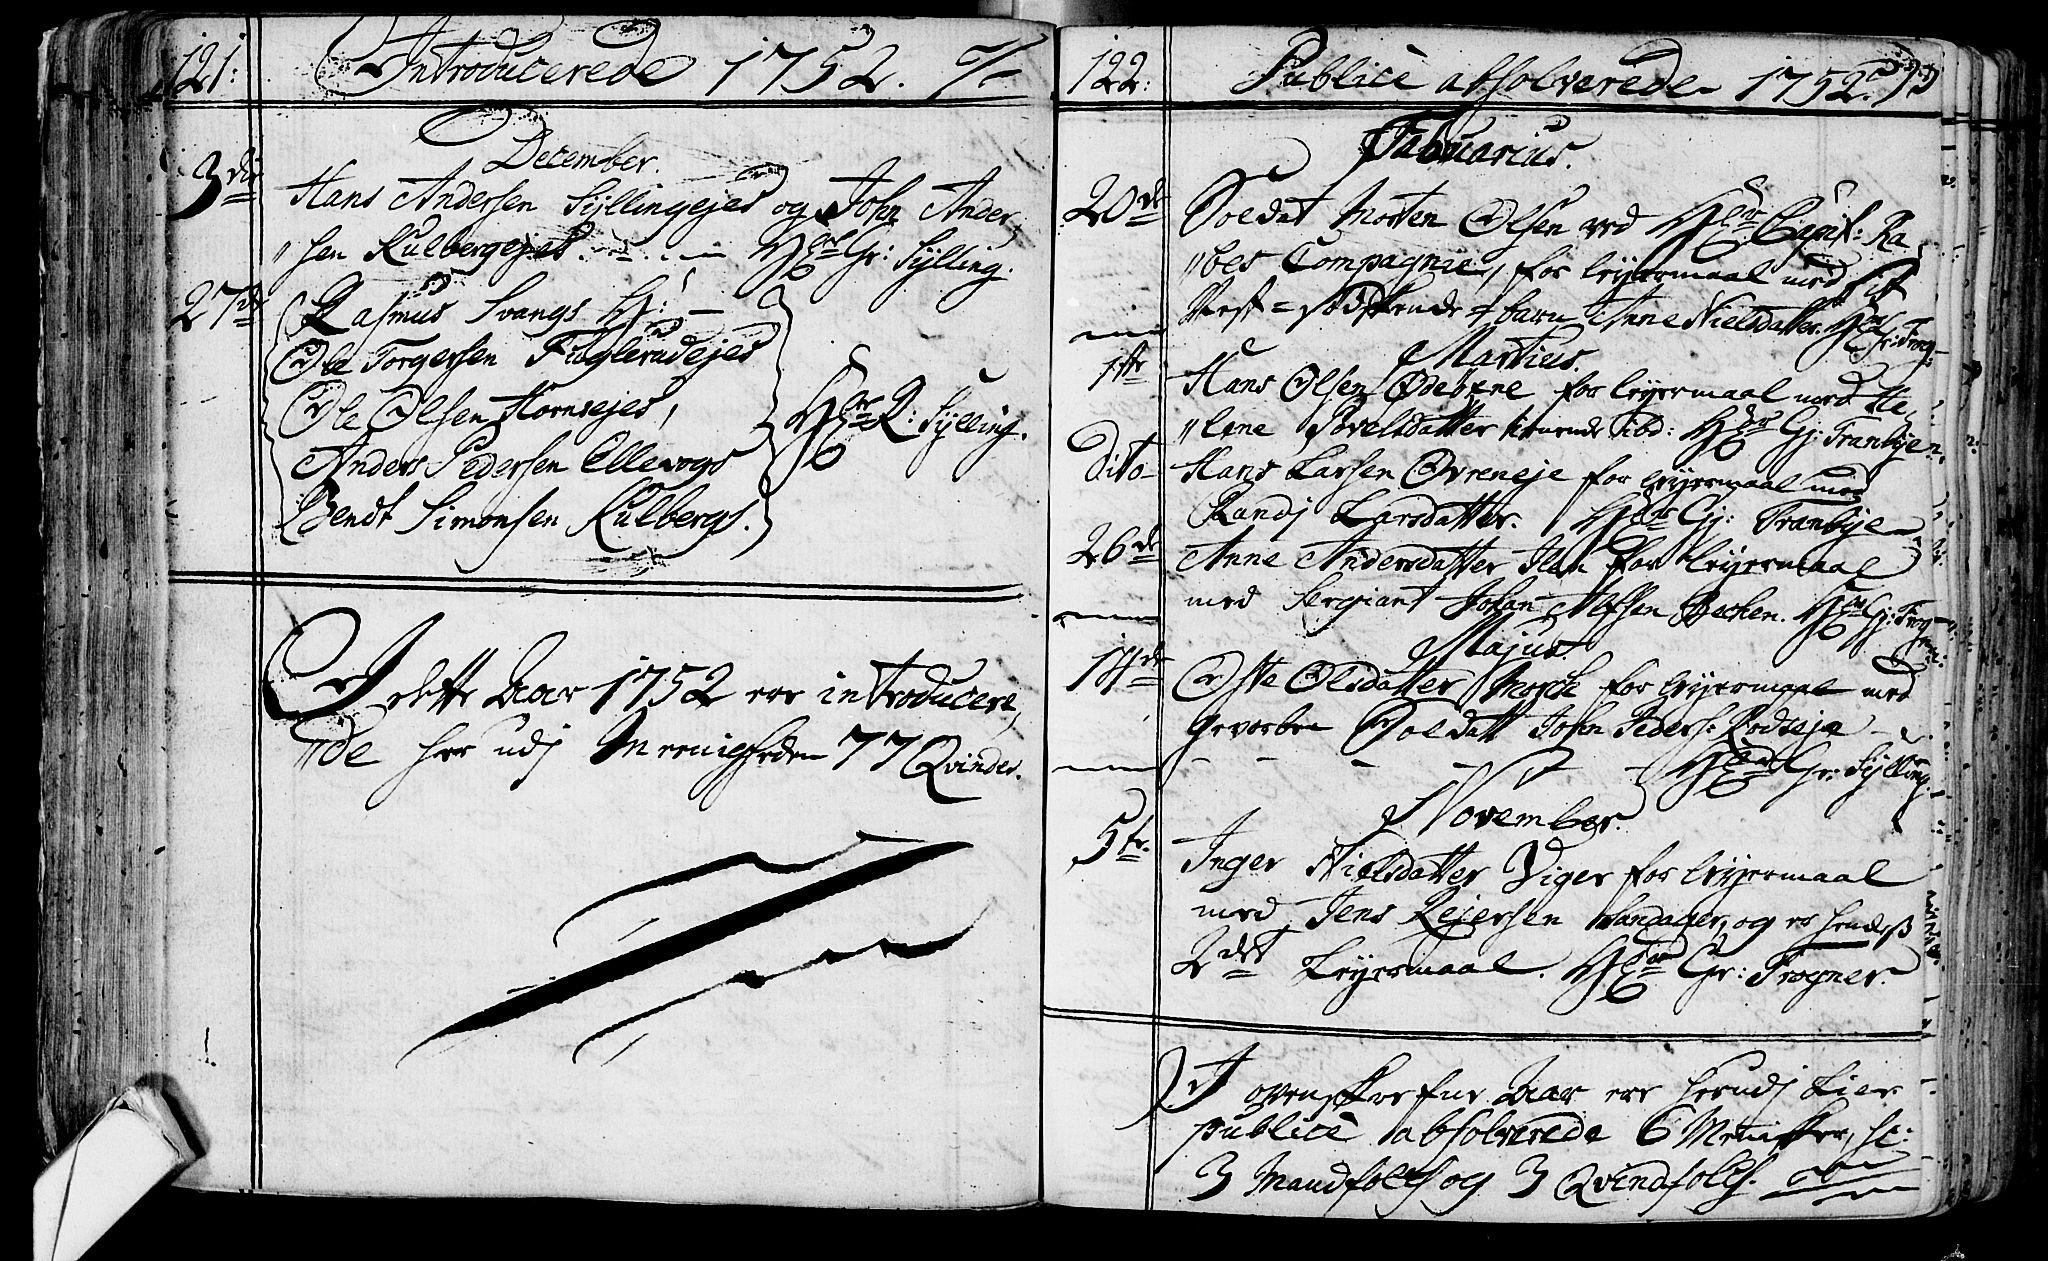 121: Introducerede 1752.
December.
3die Hans Andersen Syllingejes og John Ander-
"sen Kulbergejes. Hr Gr: Sylling.
27de Rasmus Svangs H:
Ole Torgersen Fuglerudejes
Ole Olsen Hornsejes,
Anders Pedersen Ellevogs
Bendt Simonsen Kulbergs.
R: Sylling.
I dette Aar 1752 ere introducere,
"de her udj Meenigheden 77 Qvinder.
122: Publicè absolverede 1752.
Fabruarius.
20de Soldat Morten Olsen ved Capit: Ra,
"bes Compagnie, for leyermaal med sit
Nest-sødskende barn Anne Nielsdatter.
Martius.
1ste Hans Olsen Ødevne for leyermaal med He,
"lene Povelsdatter ibd: Gj: Tranbyen.
dito Hans Larsen Ovreneje for leyermaal med
Randj Larsdatter. Gj: Tranbye
26de Anne Andersdatter for leyermaal
med Sergiant Johan Becken.
Majus.
14de Olsdatter Morck for leyermaal med
gevorben Soldatt John Peders: Rodseje
Gr: Sylling.
November.
5te. Inger Nielsdatter Viger for leyermaal
med Jens Rejersen Sandager, og er hendes
2det Leyermaal. Gr: Trogner.
I ovenskrefne Aar ere herudj Lier
publicè absolverede 6 Menisker, sc:
3 Mandfolch og 3 Qvindfolch.